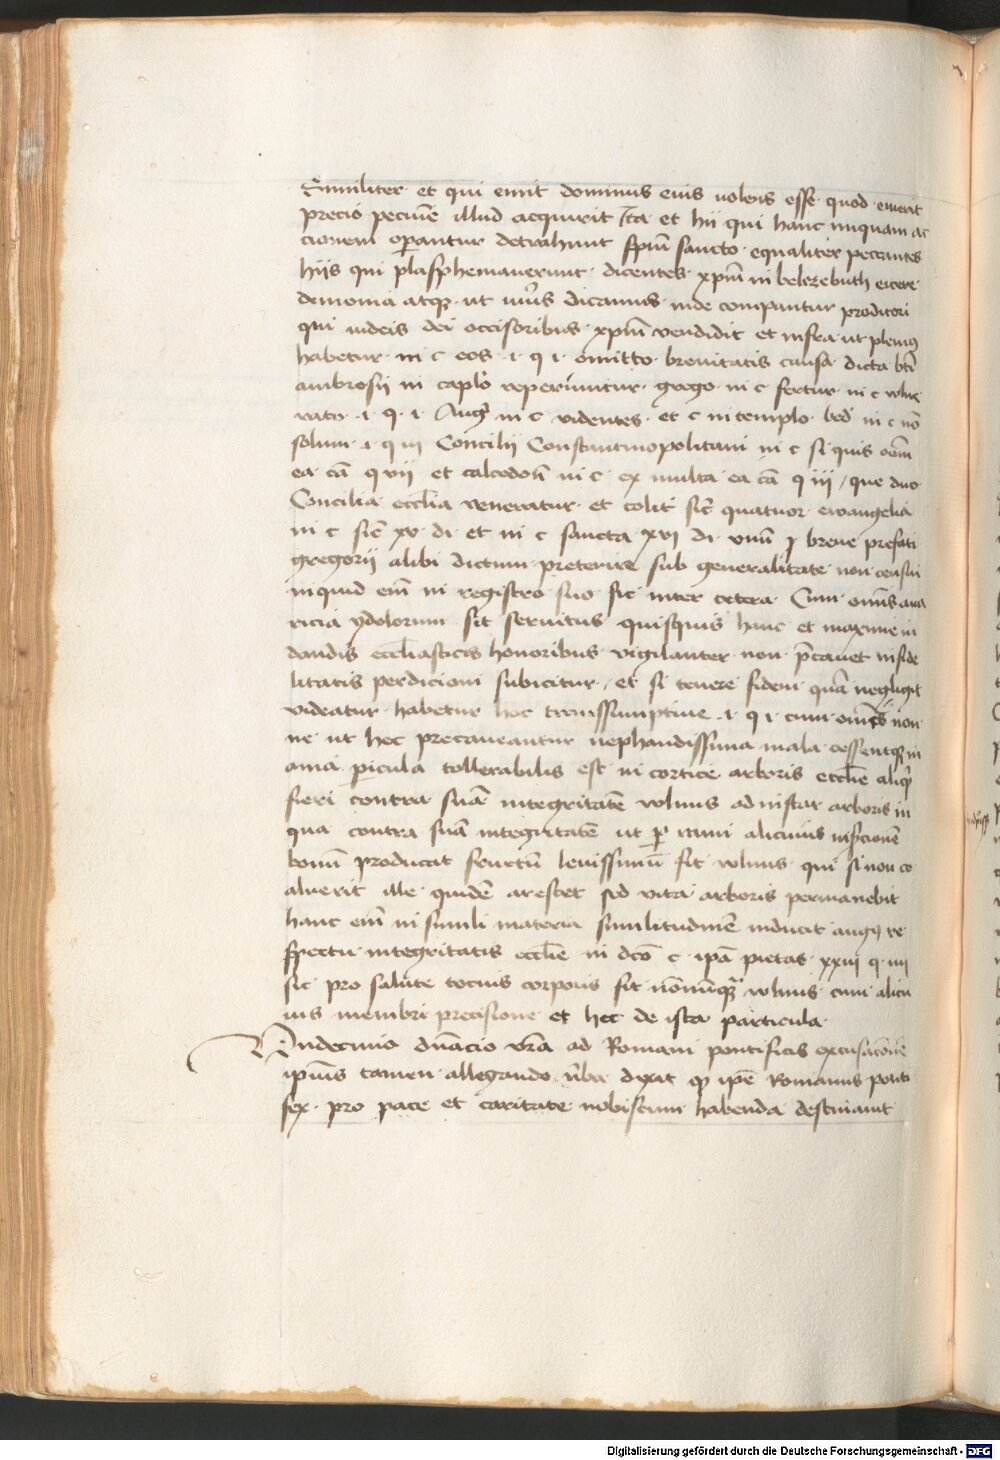 Similiter et qui emit dominus eius uolens esse quod emerit
precio pecunie illud acquirit Ita et hii qui hanc iniquam ac
cionem operantur detrahunt spiritui sancto equaliter peccantes
hiis qui plasphemauerunt dicentes xpm in belezebuth eicere
demonia atque ut verius dicamus inde comparantur proditori
qui iudeis dei occisoribus xpm vendidit et infra ut plenius
habetur in c eos i q i omitto breuitatis causa dicta bti
ambrosii in caplo reperiuntur grego in c fertur in c
i q i Aug in c videntes et c in templo bed in c non
solum i q iii Concilii Constantinopolitani in c si quis oem
ea ca q vii et calcedon in c ex multa ea ca q iii que duo
Concilia ecclia veneratur et colit sic quatuor ewangelia
in c sic xv di et in c sancta xvi di vnum breue prefati
gregorii alibi dictum preterire sub generalitate non censui
inquid eni in registro suo sic inter cetera Cum omnis aua
ricia ydolorum sit seruitus quisquis hanc et maxime in
dandis ecclesiasticis honoribus vigilanter non precauet infide
litatis perdicioni subicitur et si tenere fidem quam negligit
videatur habetur hoc transsumptiue i q i cum omnis non
ne ut hec precaueantur nephandissima mala cessentque in
ania pericula tollerabilis est in cortice arboris ecclie aliquid
fieri contra suam integritatem volumus ad instar arboris in
qua contra suam integritatem ut per rami alicuius inscionem
bonum producat fructum leuissimum sit volnus qui si non co
aluerit ille quidem arescet sed vita arboris permanebit
hanc eni in simili materia similitudinem inducit augus re
spectu integritatis ecclie in dco c ipa pietas xxiii q iiii
sic pro salute tocius corporis fit nonnunquam volnus cum alicu
ius membri precisione et hec de ista particula
Vndecimo duacio vra ad Romani pontificis excusacionem
ipius tamen allegando verba dixit quod ipse Romanus ponti
fex pro pace et caritate nobiscum habenda destinauit
Digitalisierung gefördert durch die Deutsche Forschungsgemeinschaft - DFG